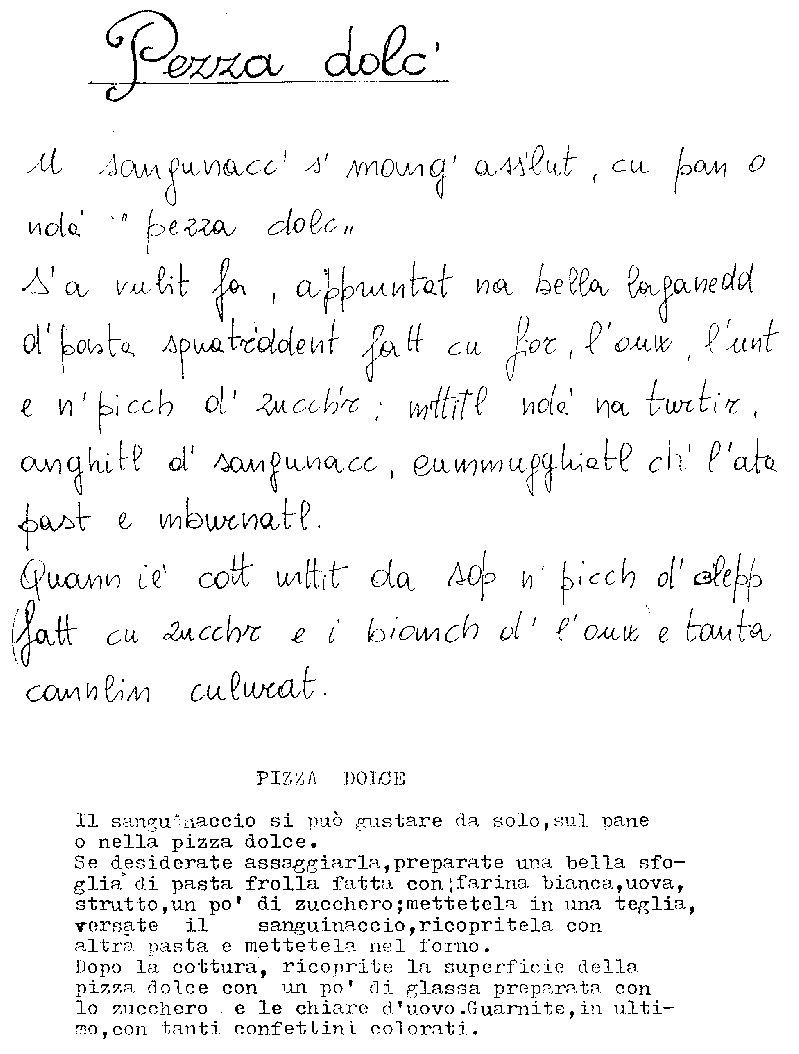 Pezza dolc'
U sangunacc' s' mang' ass'lut, cu pan o
ndà " pezza dolc"
S'a vulit fa, appruntat na bella laganedd
d'pasta squatrèddent fatt cu for, l'ouv, l'unt
e n'picch d' zucch'r; mttitl ndà na turtir,
anghitl d' sangunacc, cummugghiatl ch' l'ata
past e mburnatl.
Quann iè cott mttit da sop n' picch d' clepp
(fatt cu zucchr e i bianch d' l'ouv e tanta
cannlin culurat.
PIZZA DOLCE
Il sanguinaccio si può gustare da solo,sul pane
o nella pizza dolce.
Se desiderate assaggiarla,preparate una bella sfo-
glia di pasta frolla fatta con;farina bianca,uova,
strutto,un po' di zucchero;mettetela in una teglia,
versate il sanguinaccio,ricopritela con
altra pasta e mettetela nel forno.
Dopo la cottura, ricoprite la superficie della
pizza dolce con un po' di glassa preparata con
lo zucchero e le chiare d'uovo.Guarnite,in ulti-
mo,con tanti confettini colorati.